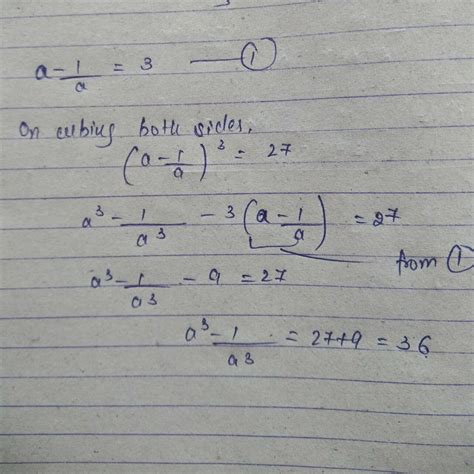 a - 1/a = 3 —— ①
On cubing both sides,
(a - 1/a)³ = 27
a³ - 1/a³ - 3(a - 1/a) = 27
from ①
a³ - 1/a³ - 9 = 27
a³ - 1/a³ = 27+9 = 36